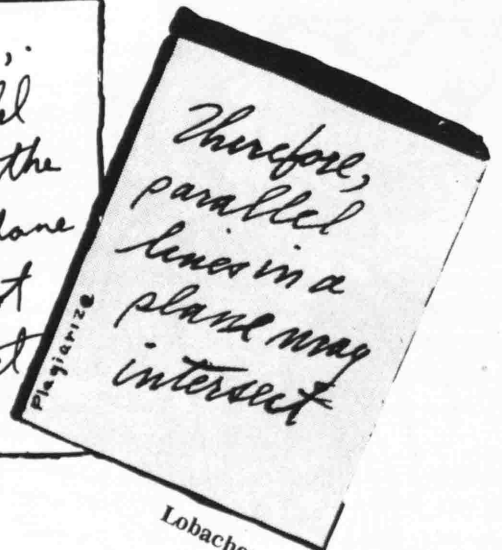 ,.
the
Therefore,
parallel
lines in a
plane may
intersect
Plagiarize